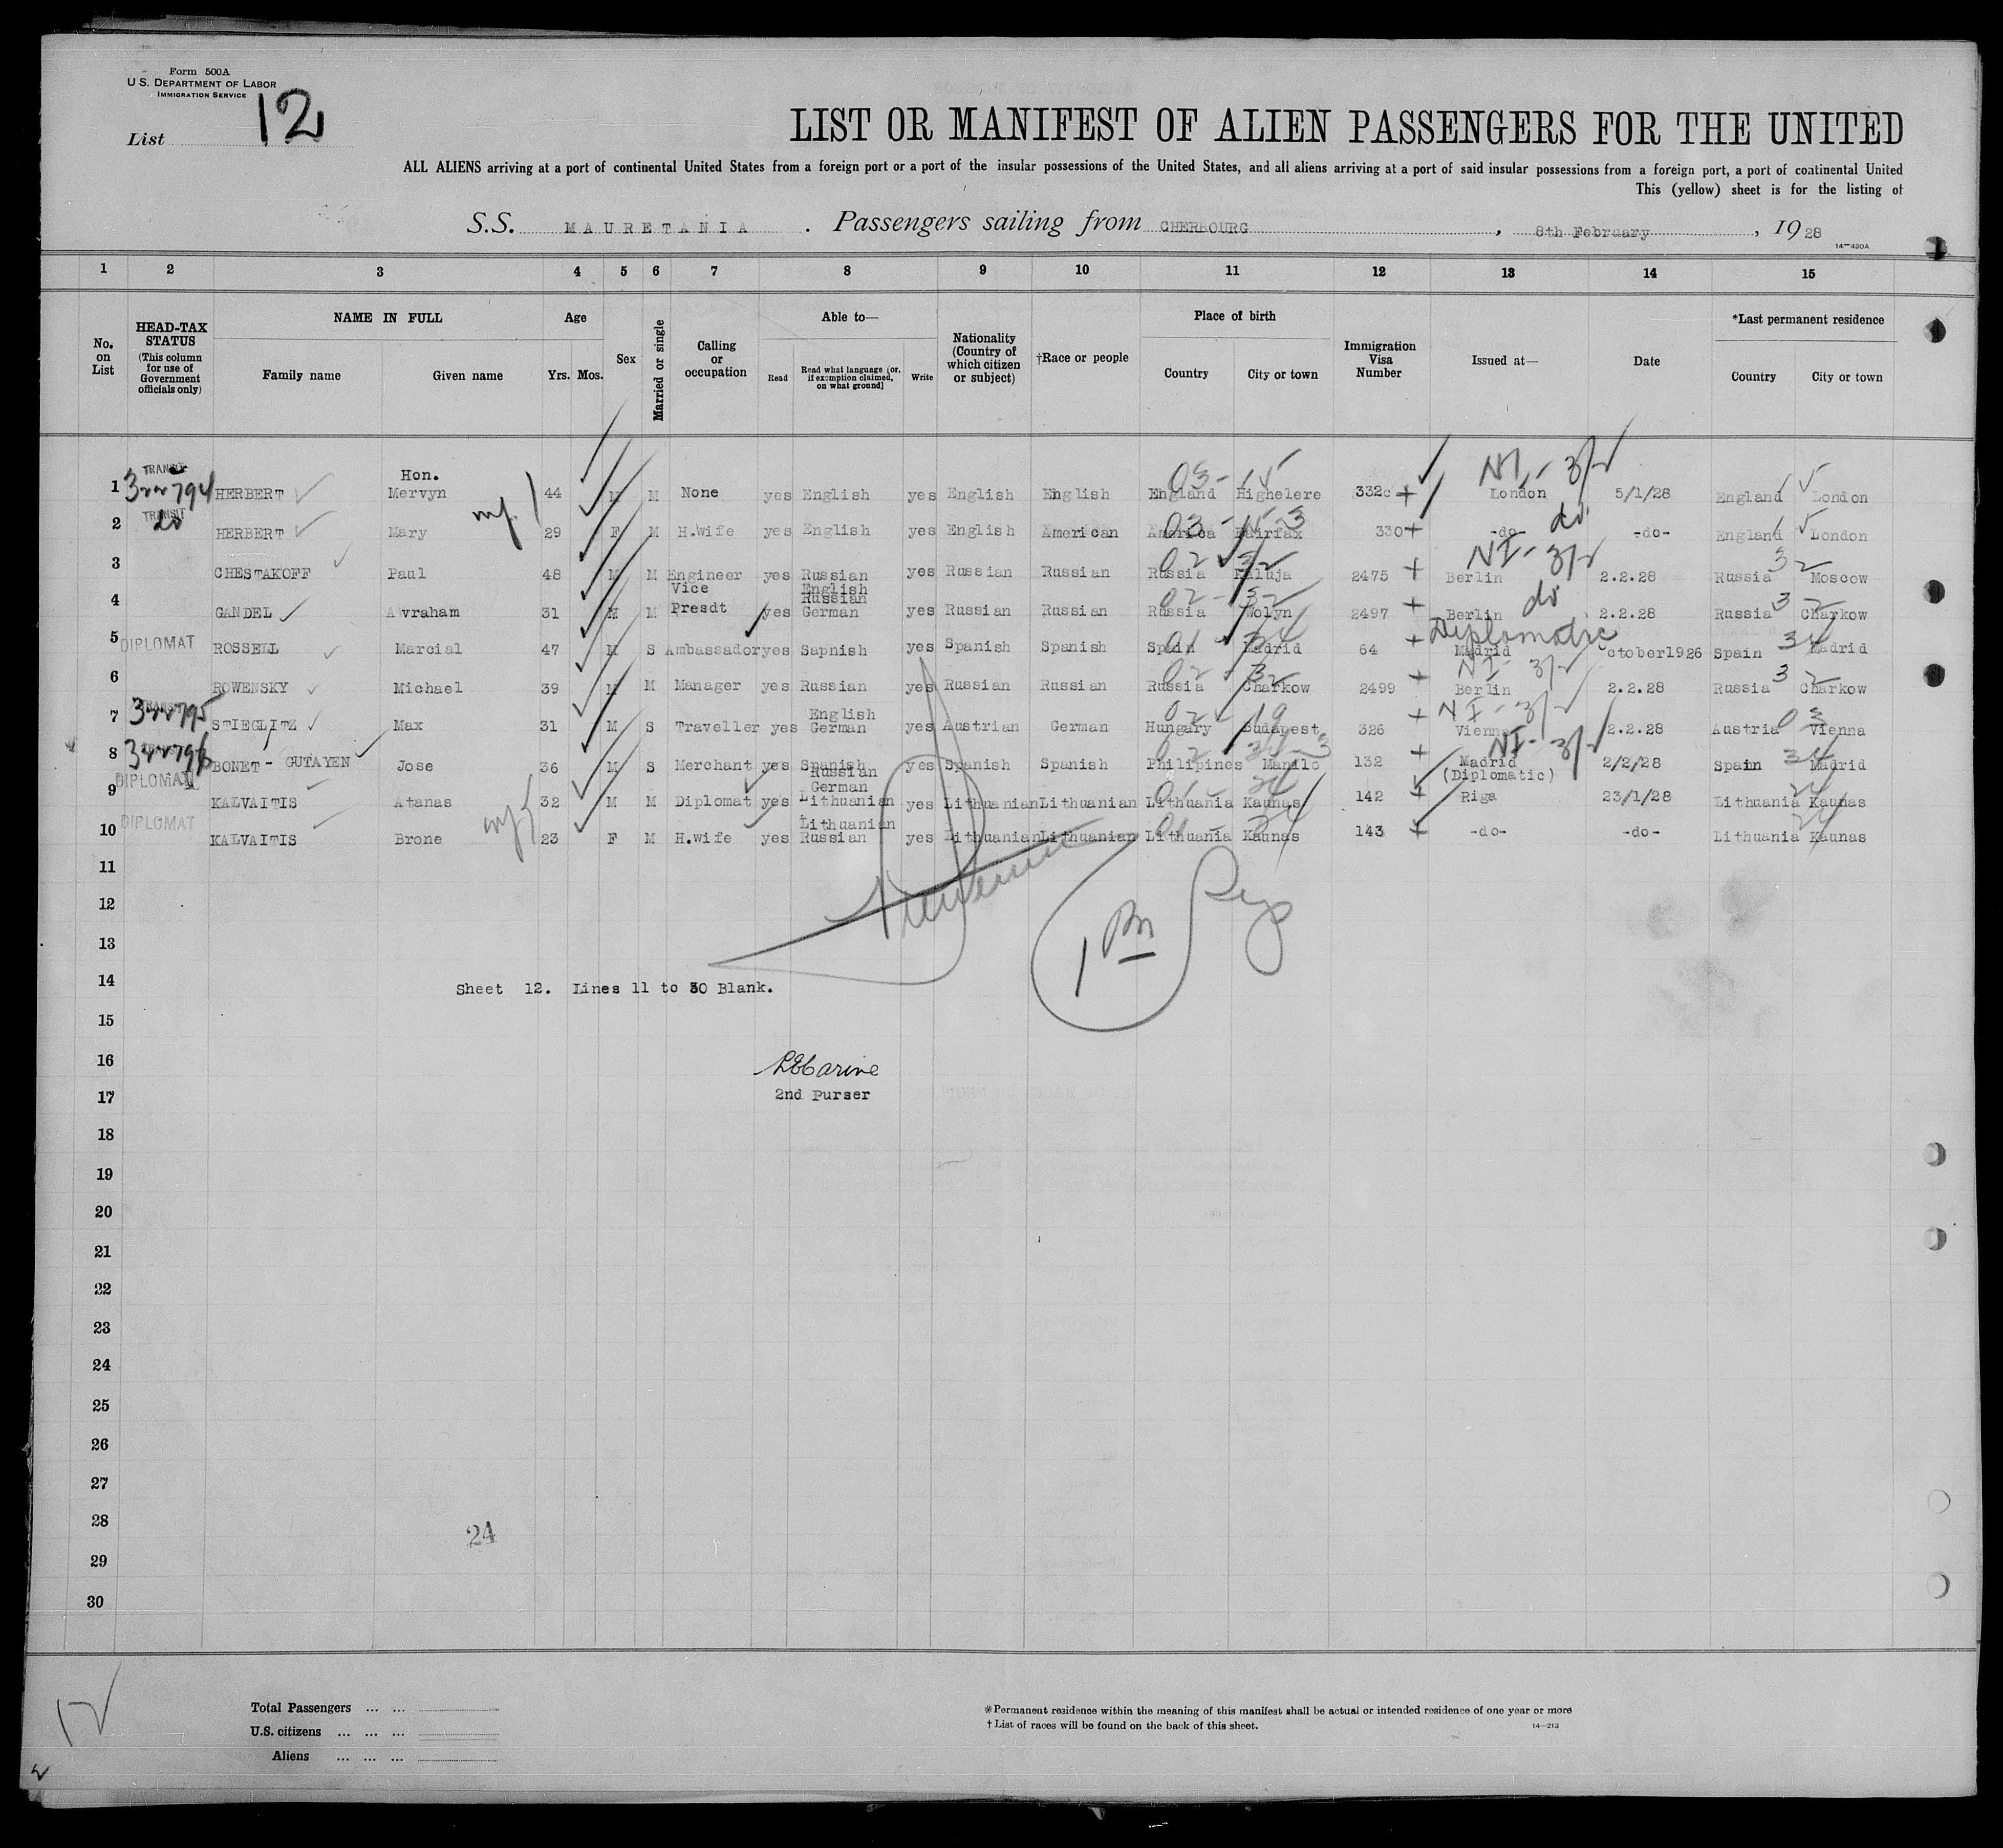 Form 500A
U.S. DEPARTMENT OF LABOR
IMMIGRATION SERVICE
List 12
LIST OR MANIFEST OF ALIEN PASSENGERS FOR THE UNITED
ALL ALIENS arriving at a port of continental United States from a foreign port or a port of the insular possessions of the United States, and all aliens arriving at a port of said insular possessions from a foreign port, a port of continental United
This (yellow) sheet is for the listing of
S.S. MAURETANIA . Passengers sailing from CHERBOURG , 8th February , 1928
14-430A
1 2 3 4 5 6 7 8 9 10 11 12 13 14 15
No. on List
HEAD-TAX STATUS (This column for use of Government officials only)
NAME IN FULL
Family name Given name
Age
Yrs. Mos.
Sex
Married or single
Calling or occupation
Able to—
Read
Read what language [or, if exemption claimed, on what ground]
Write
Nationality (Country of which citizen or subject)
†Race or people
Place of birth
Country City or town
Immigration Visa Number
Issued at—
Date
*Last permanent residence
Country City or town
1 TRANSIT HERBERT Hon. Mervyn 44 M M None yes English yes English English England Highelere London 5/1/28 England London
2 TRANSIT do HERBERT Mary 29 F M H.Wife yes English yes English American America Fairfax 330 -do- -do- England London
3 CHESTAKOFF Paul 48 M M Engineer yes Russian English yes Russian Russian Russia Kaluja 2475 Berlin 2.2.28 Russia Moscow
4 GANDEL Avraham 31 M M Vice Presdt yes Russian German yes Russian Russian Russia Wolyn 2497 Berlin 2.2.28 Russia Charkow
5 DIPLOMAT ROSSELL Marcial 47 M S Ambassador yes Sapnish yes Spanish Spanish Spain Madrid 64 Diplomatic Madrid ctober1926 Spain Madrid
6 ROWENSKY Michael 39 M M Manager yes Russian yes Russian Russian Russia Charkow 2499 Berlin 2.2.28 Russia Charkow
7 STIEGLITZ Max 31 M S Traveller yes English German yes Austrian German Hungary Budapest 326 Vienna 2.2.28 Austria Vienna
8 BONET - GUTAYEN Jose 36 M S Merchant yes Spanish yes Spanish Spanish Philipines Manilo 132 Madrid (Diplomatic) 2/2/28 Spain Madrid
9 DIPLOMAT KALVAITIS Atanas 32 M M Diplomat yes Russian German Lithuanian yes Lithuanian Lithuanian Lithuania Kaunas 142 Riga 23/1/28 Lithuania Kaunas
10 DIPLOMAT KALVAITIS Brone 23 F M H.wife yes Lithuanian Russian yes Lithuanian Lithuanian Lithuania Kaunas 143 -do- -do- Lithuania Kaunas
11
12
13
14
Sheet 12. Lines 11 to 30 Blank.
15
16
17
2nd Purser
18
19
20
21
22
23
24
25
26
27
28
24
29
30
Total Passengers ... ...
U.S. citizens ... ... ...
Aliens ... ... ...
*Permanent residence within the meaning of this manifest shall be actual or intended residence of one year or more
† List of races will be found on the back of this sheet.
14-213